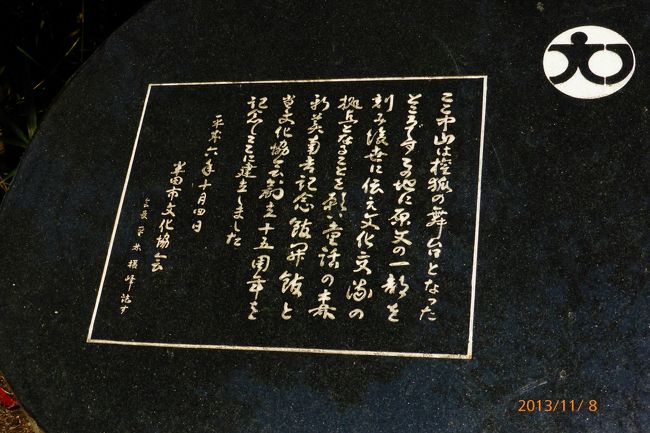 ここ中山は権狐の舞台となった
ところですこの地に原文の一部を
刻み後世に伝え文化交流の
拠点となることを願い童話の森
新美南吉記念館開館と
当文化協会創立十五周年を
記念してここに建立しました
平成六年十月四日
半田市文化協会
会長
2013/11/ 8